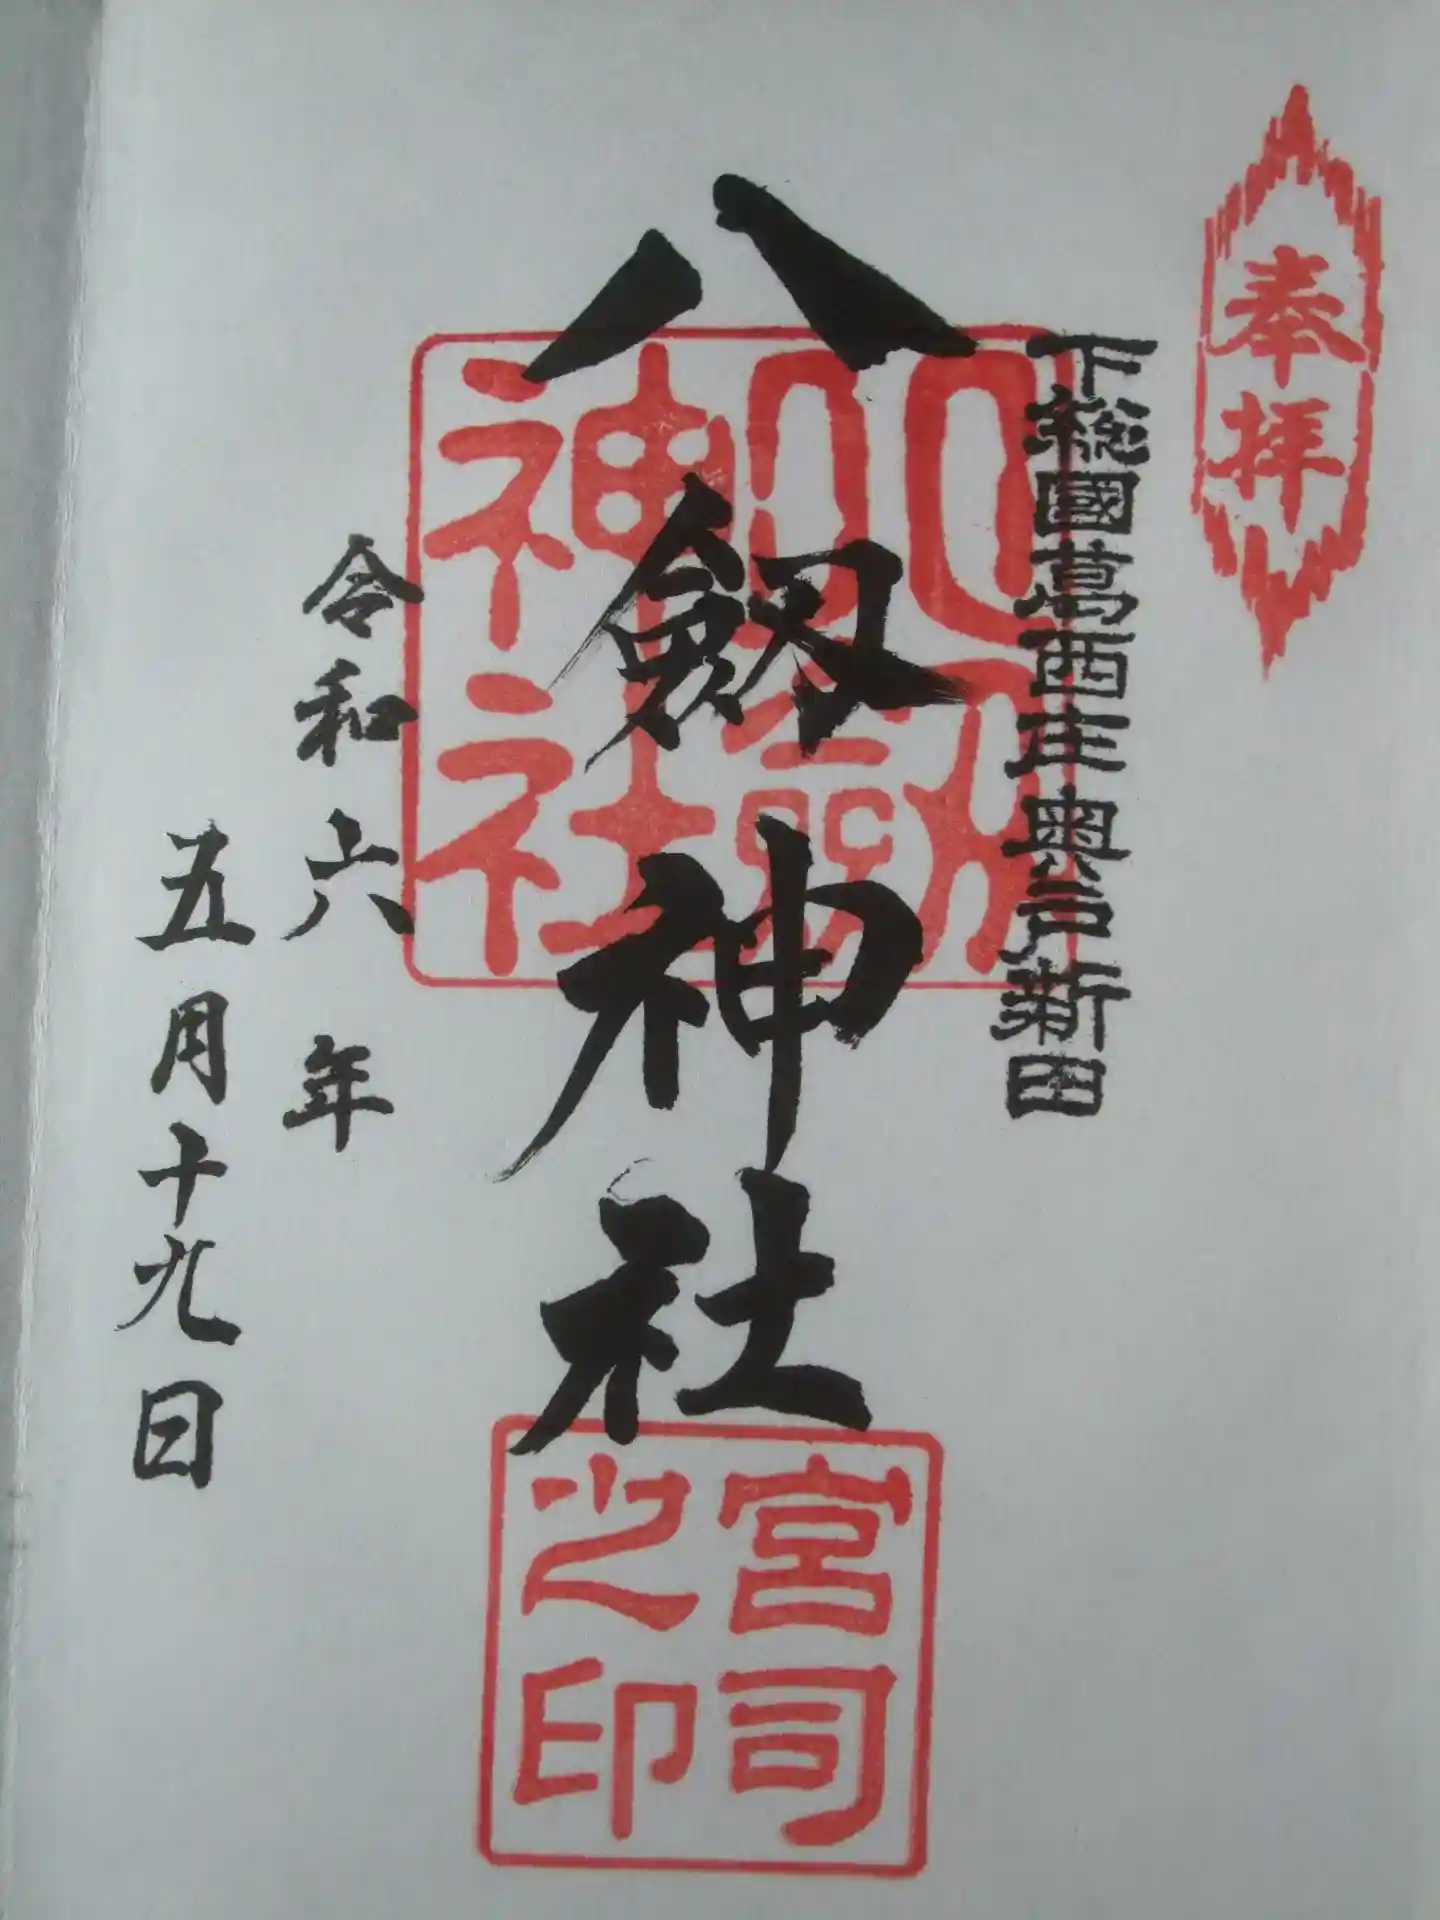 奉拝
下総國葛西庄奥戸新田
八劔神社
八劔神社
令和六年
五月十九日
宮司之印